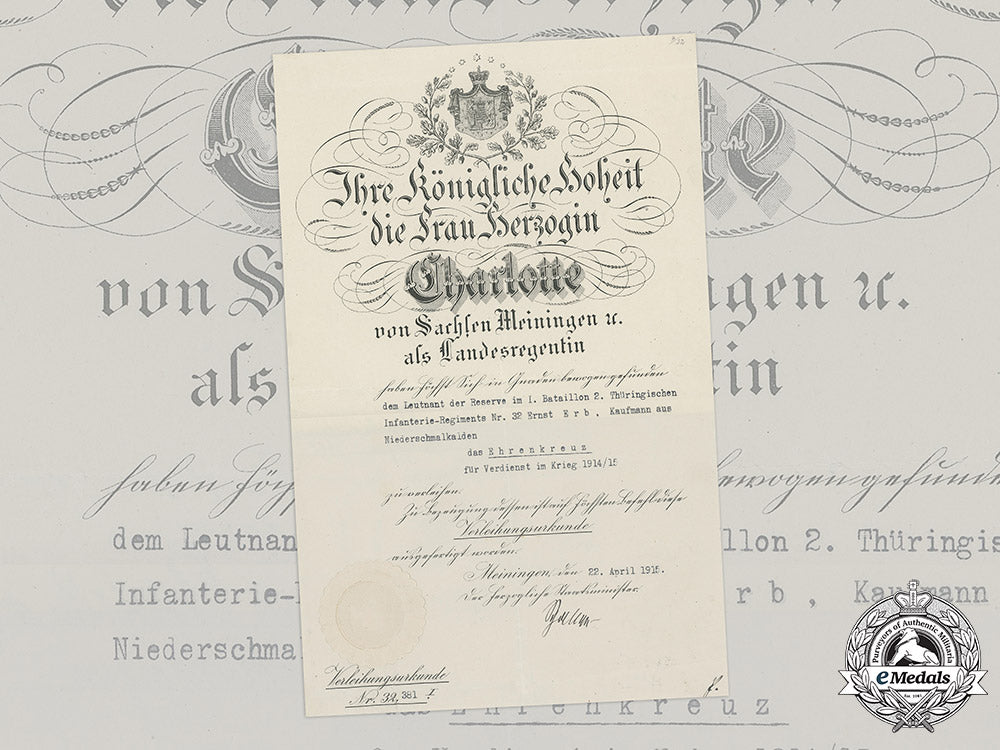 P32
Ihre Königliche Hoheit
die Frau Herzogin
Charlotte
von Sachsen Meiningen u.
als Landesregentin
haben Höchst Sich in Gnaden bewogen gefunden
dem Leutnant der Reserve im I. Bataillon 2. Thüringischen
Infanterie-Regiments Nr. 32 Ernst E r b , Kaufmann aus
Niederschmalkalden
das E h r e n k r e u z
für Verdienst im Krieg 1914/15
zu verleihen.
Zu Bezeugung dessen ist auf Höchsten Befehl diese
Verleihungsurkunde
ausgefertigt worden.
Meiningen, den 22. April 1915.
Der Herzogliche Staatsminister.
Verleihungsurkunde
Nr. 32,381 I
von S
ngen u.
als
tin
haben Höch
bewogen gefunde
dem Leutnan
llon 2. Thüringis
Infanterie-
r b , Kaufmann
Niederschma
das E h r e n k r e u z
Purveyors of Authentic Militaria
eMedals